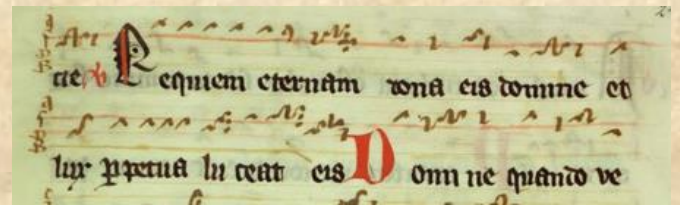 tie Requiem eternam dona eis domine et
lux ppetua lu ceat eis Domine quando ve